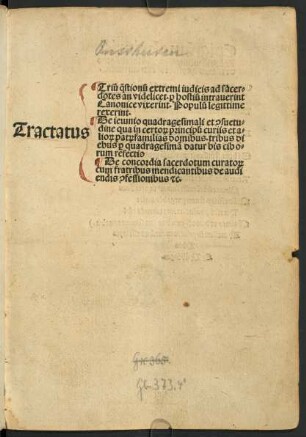 Triū q̄stionū extremi iudicis ad sacer-
dotes an videlicet p hostiū intrauerint
Canonice vixerint. Populū legittime
rexerint.
Tractatus
De ieiunio quadragesimali et ɔsuetu
dine qua in certoꝝ principū curiis et a
lioꝝ patrūfamilias domibus. tribus di
ebus ꝑ quadragesimā datur bis cibo
rum refectio
De concordia sacerdotum curatoꝝ
cum fratribus mendicantibus de audi
endis ɔfessionibus ⁊c.
Gb 373. 4°